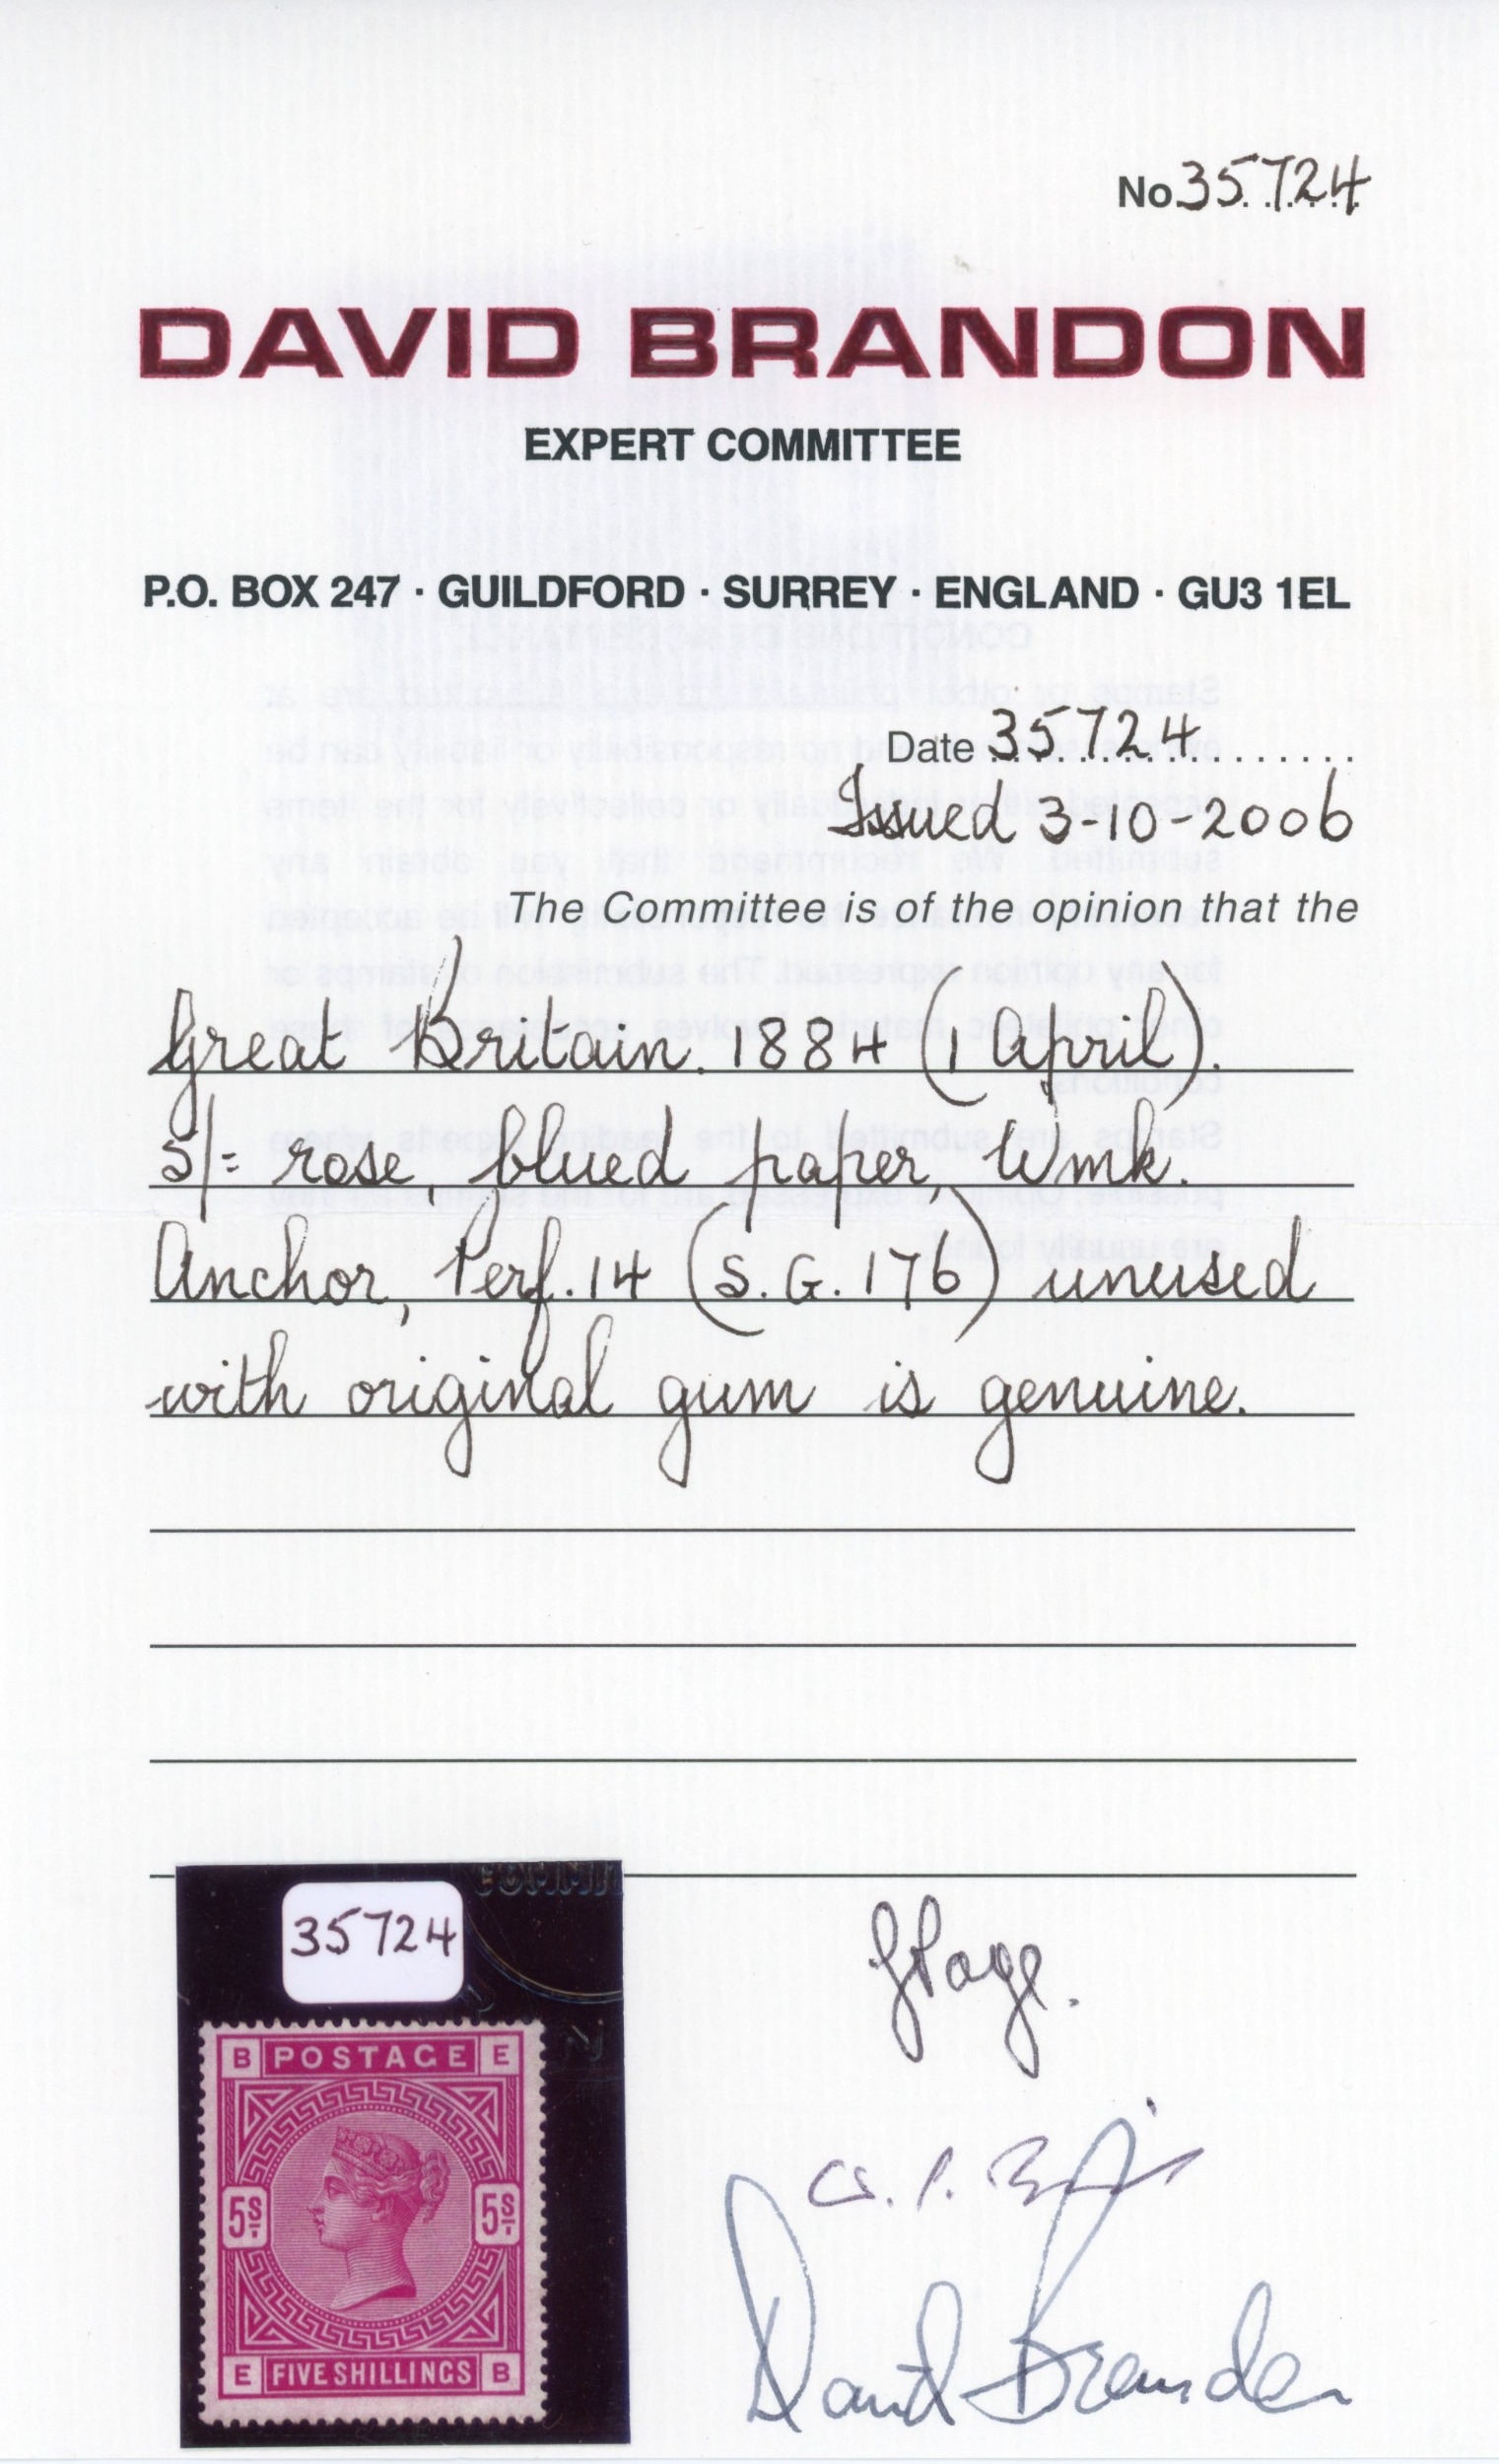 No. 35724
DAVID BRANDON
EXPERT COMMITTEE
P.O. BOX 247 · GUILDFORD · SURREY · ENGLAND · GU3 1EL
Date 35724
Issued 3-10-2006
The Committee is of the opinion that the
Great Britain. 1884 (1 April).
5/= rose, blued paper, Wmk.
Anchor, Perf. 14 (S.G. 176) unused
with original gum is genuine.
35724
B POSTAGE E
5S. 5S.
E FIVE SHILLINGS B
David Brandon